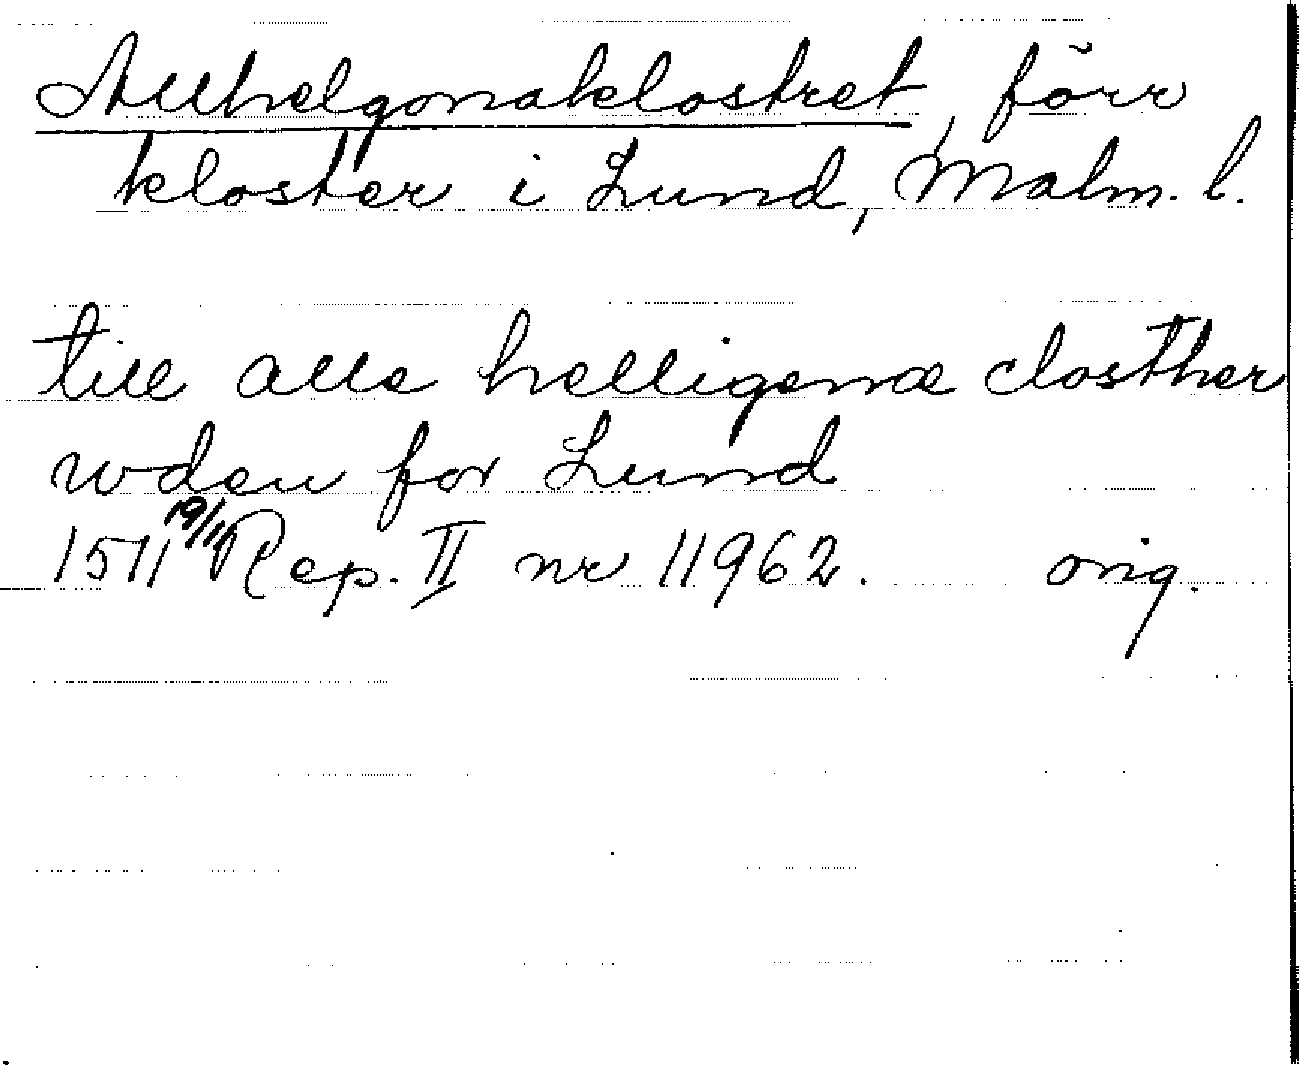 Allhelgonaklostret, förr
kloster i Lund, Malm. l.
till alle helligenæ closther
wden for Lund
1511 19/11 Rep. II nr 11962. orig.